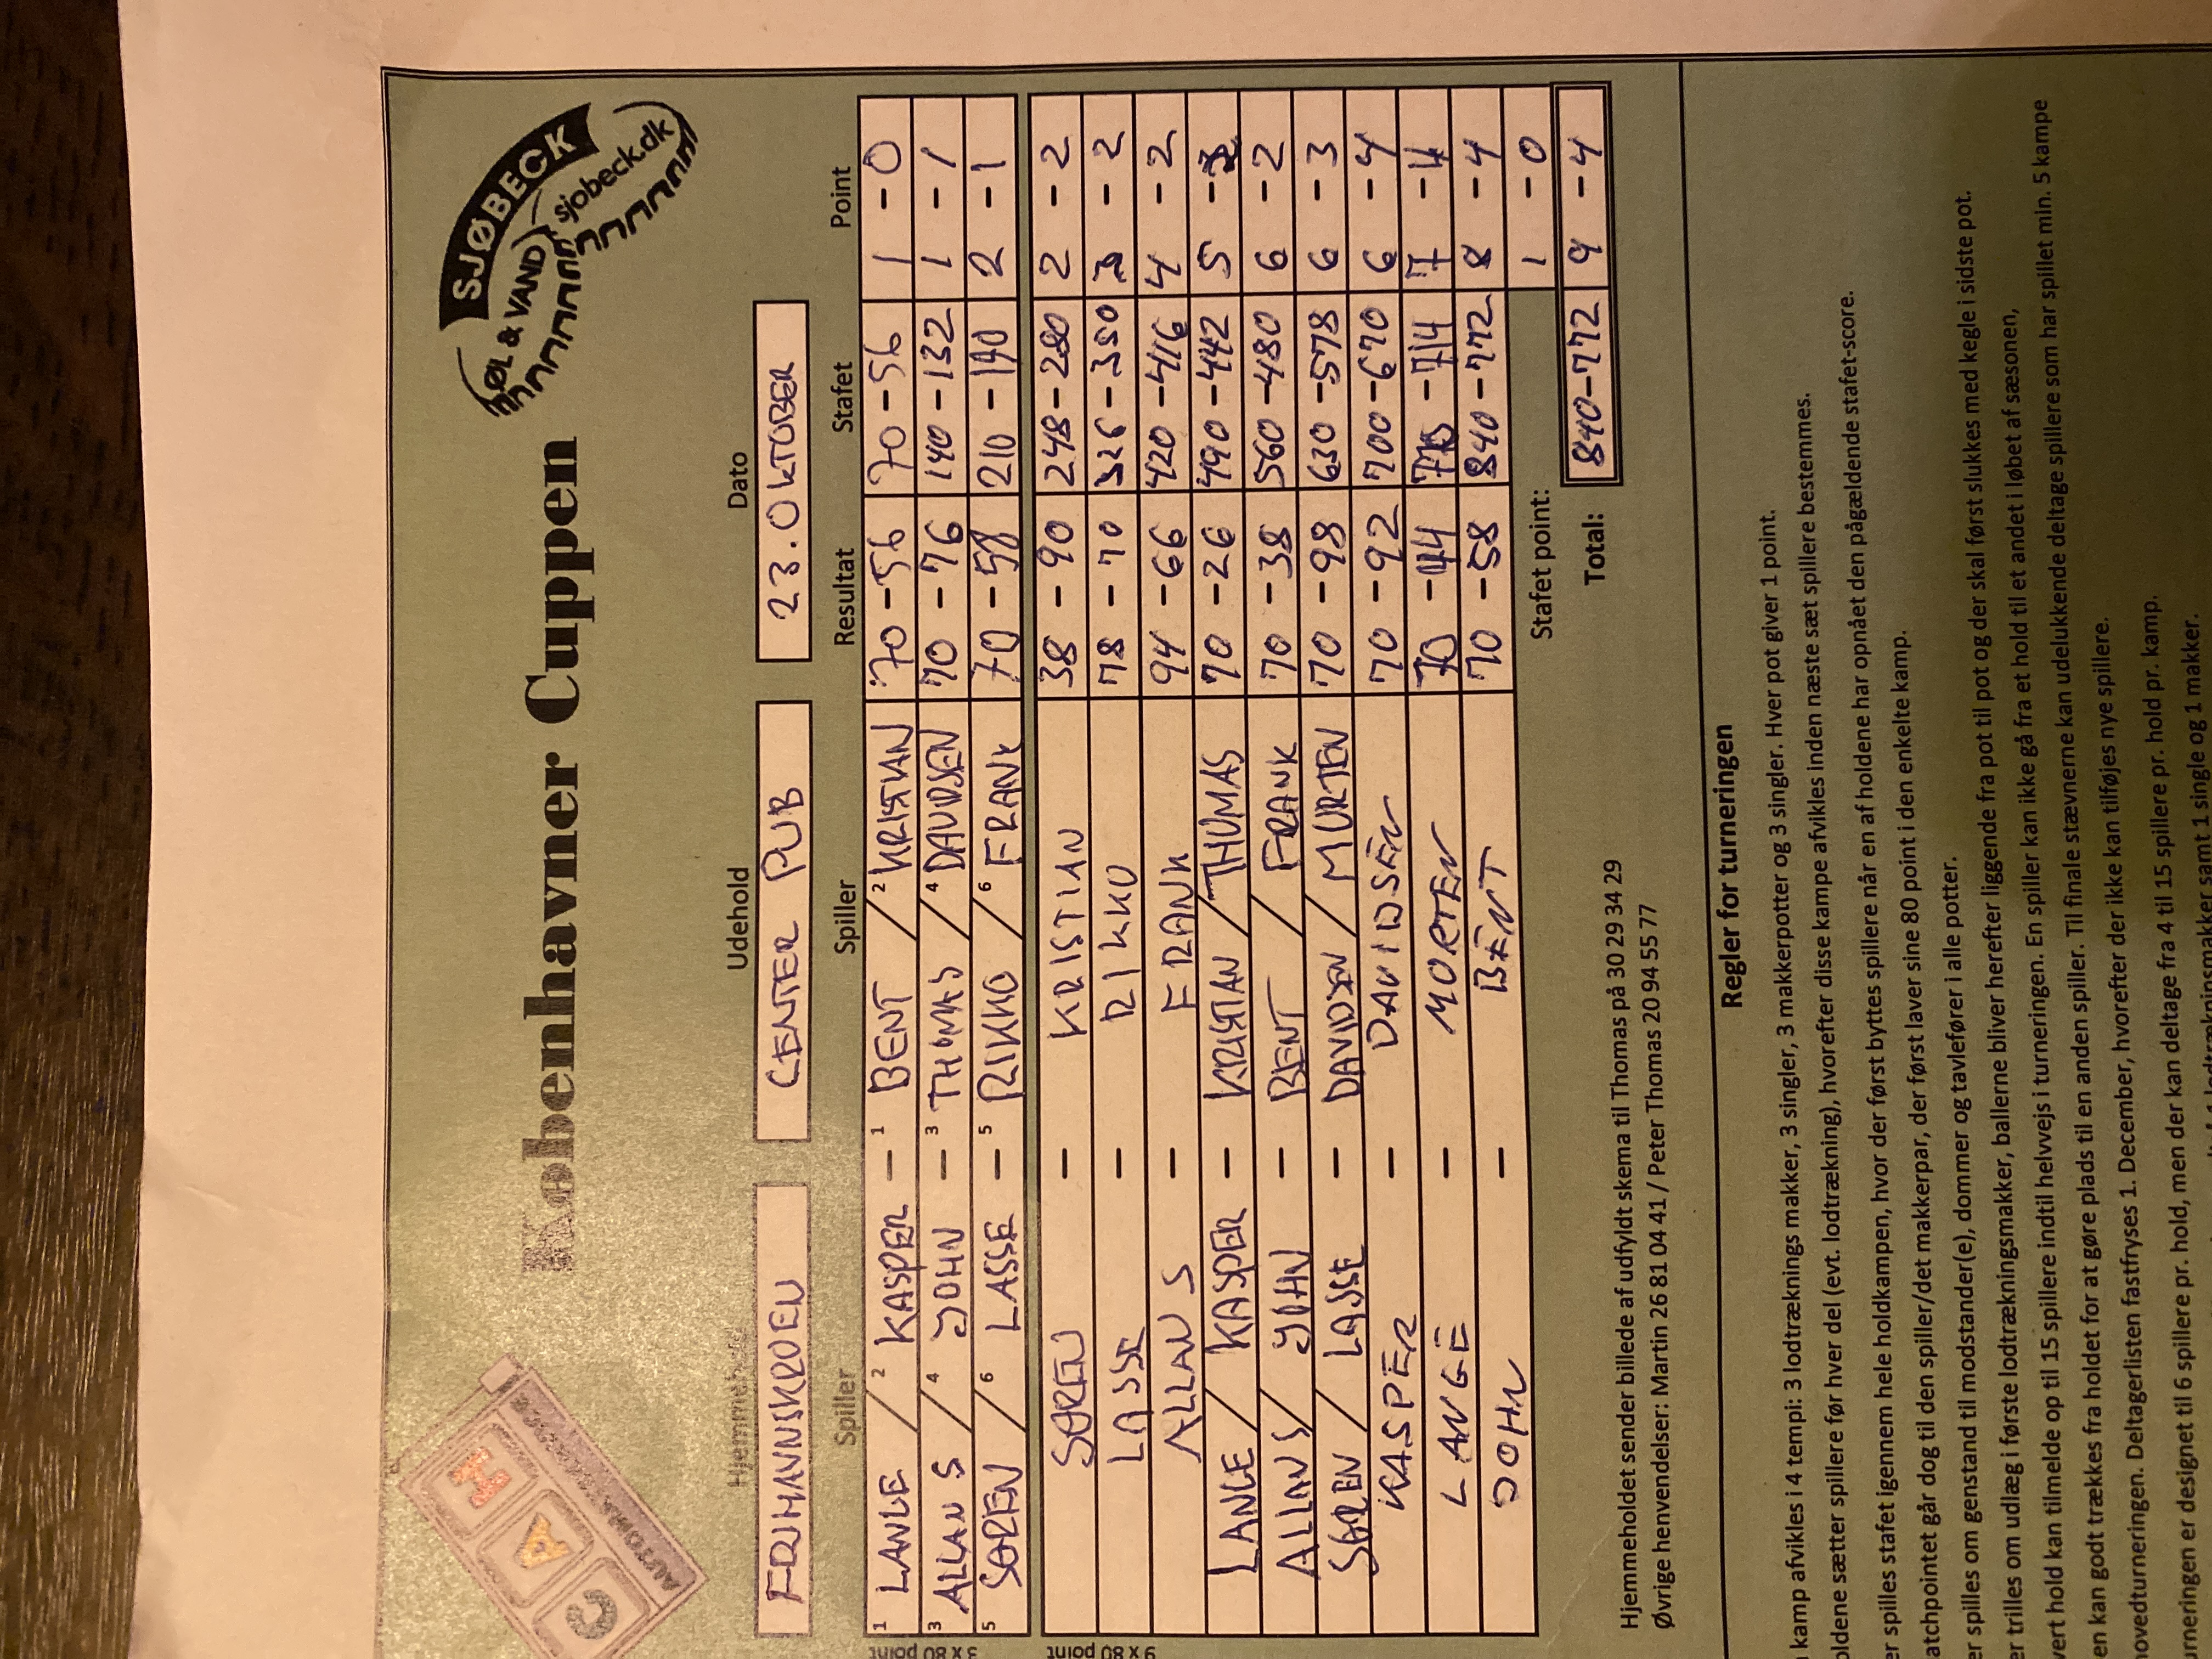 SJØBECK
ØL & VAND
sjobeck.dk
C A H
AUTOMATSERVICE
Københavner Cuppen
Hjemmehold Udehold Dato
FRIHAVNSKROEN CENTER PUB 23. OKTOBER
Spiller Spiller Resultat Stafet Point
1 LANGE / 2 KASPER - 1 BENT / 2 KRISTIAN 70 - 56 70 - 56 1 - 0
3 ALLAN S / 4 JOHN - 3 THOMAS / 4 DAVIDSEN 70 - 76 140 - 132 1 - 1
5 SØREN / 6 LASSE - 5 RIKKO / 6 FRANK 70 - 58 210 - 190 2 - 1
SØREN - KRISTIAN 38 - 90 248 - 280 2 - 2
LASSE - RIKKO 78 - 70 326 - 350 3 - 2
ALLAN S - FRANK 94 - 66 420 - 416 4 - 2
LANGE / KASPER - KRISTIAN / THOMAS 70 - 26 490 - 442 5 - 2
ALLAN S / JOHN - BENT / FRANK 70 - 38 560 - 480 6 - 2
SØREN / LASSE - DAVIDSEN / MORTEN 70 - 98 630 - 578 6 - 3
KASPER - DAVIDSEN 70 - 92 700 - 670 6 - 4
LANGE - MORTEN 70 - 44 770 - 714 7 - 4
JOHN - BENT 70 - 58 840 - 772 8 - 4
3 x 80 point
9 x 80 point
Stafet point: 1 - 0
Total: 840-772 9 - 4
Hjemmeholdet sender billede af udfyldt skema til Thomas på 30 29 34 29
Øvrige henvendelser: Martin 26 81 04 41 / Peter Thomas 20 94 55 77
Regler for turneringen
kamp afvikles i 4 tempi: 3 lodtræknings makker, 3 singler, 3 makkerpotter og 3 singler. Hver pot giver 1 point.
oldene sætter spillere før hver del (evt. lodtrækning), hvorefter disse kampe afvikles inden næste sæt spillere bestemmes.
er spilles stafet igennem hele holdkampen, hvor der først byttes spillere når en af holdene har opnået den pågældende stafet-score.
atchpointet går dog til den spiller/det makkerpar, der først laver sine 80 point i den enkelte kamp.
er spilles om genstand til modstander(e), dommer og tavlefører i alle potter.
er trilles om udlæg i første lodtrækningsmakker, ballerne bliver herefter liggende fra pot til pot og der skal først slukkes med kegle i sidste pot.
vert hold kan tilmelde op til 15 spillere indtil helvvejs i turneringen. En spiller kan ikke gå fra et hold til et andet i løbet af sæsonen,
en kan godt trækkes fra holdet for at gøre plads til en anden spiller. Til finale stævnerne kan udelukkende deltage spillere som har spillet min. 5 kampe
hovedturneringen. Deltagerlisten fastfryses 1. December, hvorefter der ikke kan tilføjes nye spillere.
urneringen er designet til 6 spillere pr. hold, men der kan deltage fra 4 til 15 spillere pr. hold pr. kamp.
lodtrækningsmakker samt 1 single og 1 makker.